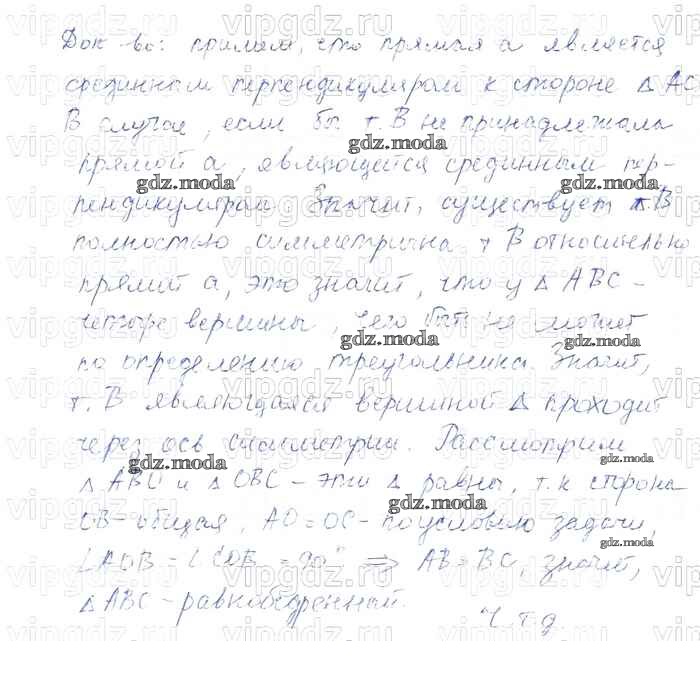 Док-во: примем, что прямая а является
срединным перпендикуляром к стороне Δ АС
В случае, если бы т. В не принадлежала
прямой а, являющейся срединным пер-
пендикуляром. Значит, существует т. В
полностью симметрична т В относительно
прямой а, это значит, что у Δ АВС -
четыре вершины, чего быть не может
по определению треугольника. Значит,
т. В являющаяся вершиной Δ проходит
через ось симметрии. Рассмотрим
Δ АВО и Δ ОВС - эти Δ равны, т. к сторона
ОВ - общая, АО = ОС - по условию задачи,
∠АОВ = ∠СОВ = 90° ⇒ АВ = ВС, значит,
Δ АВС - равнобедренный.
Ч.т.д.
vipgdz.ru
gdz.moda